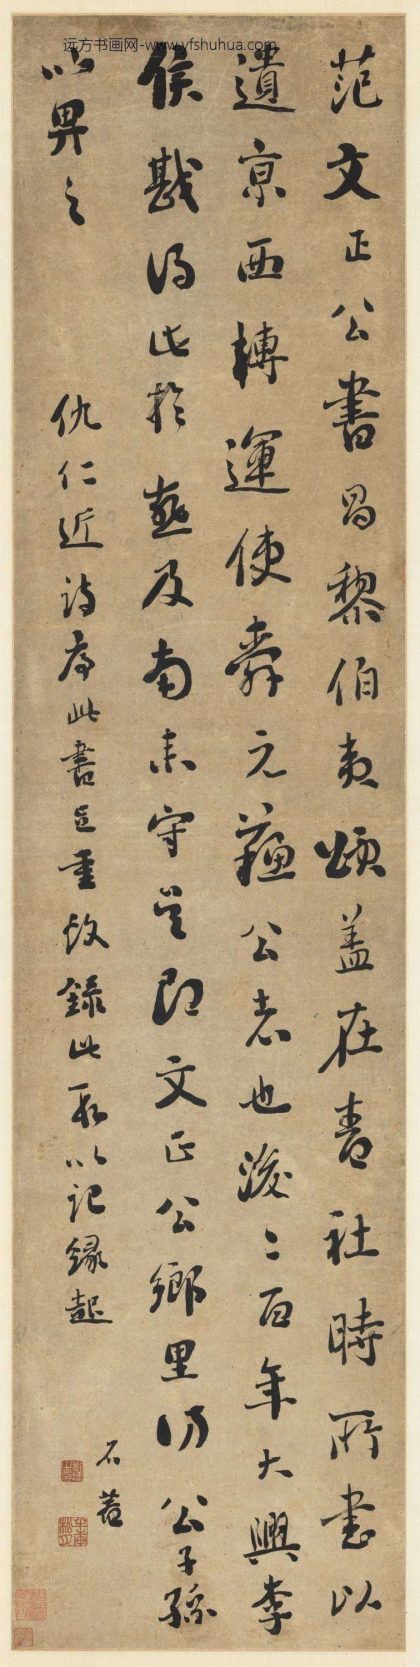 远方书画网-www.yfshuhua.com
范文正公書昌黎伯夷頌蓋在青社時所書以
遺京西轉運使舜元蘇公者也後二百年大興李
侯戡得此於燕及南來守吳即文正公鄉里訪公子孫
以畀之
仇仁近詩序此書甚重故錄此段以記緣起
石菴